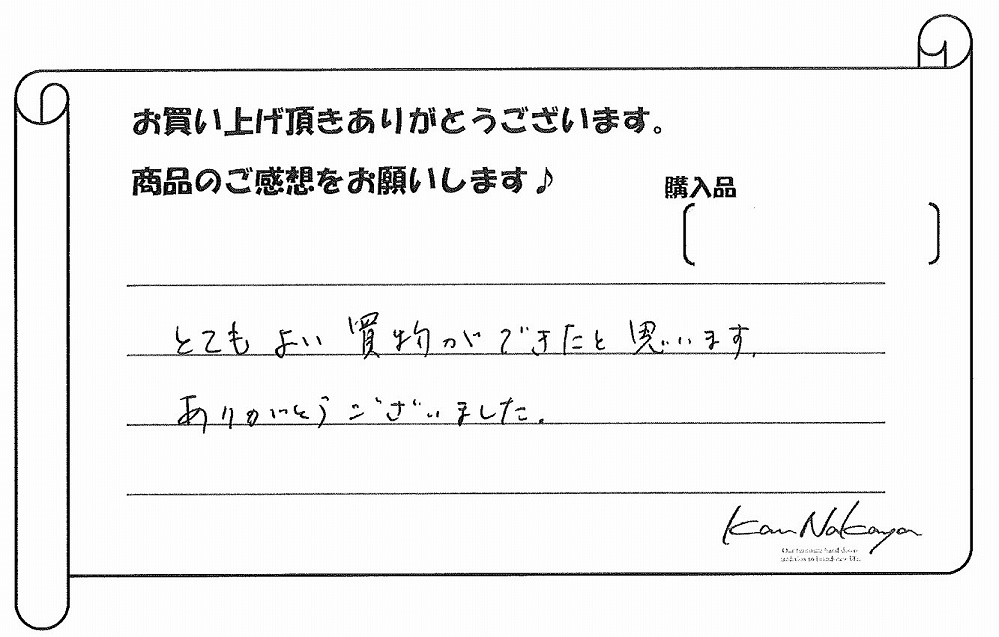 お買い上げ頂きありがとうございます。
商品のご感想をお願いします♪
購入品
とてもよい買物ができたと思います.
ありがとうございました.
Kan Nakaya